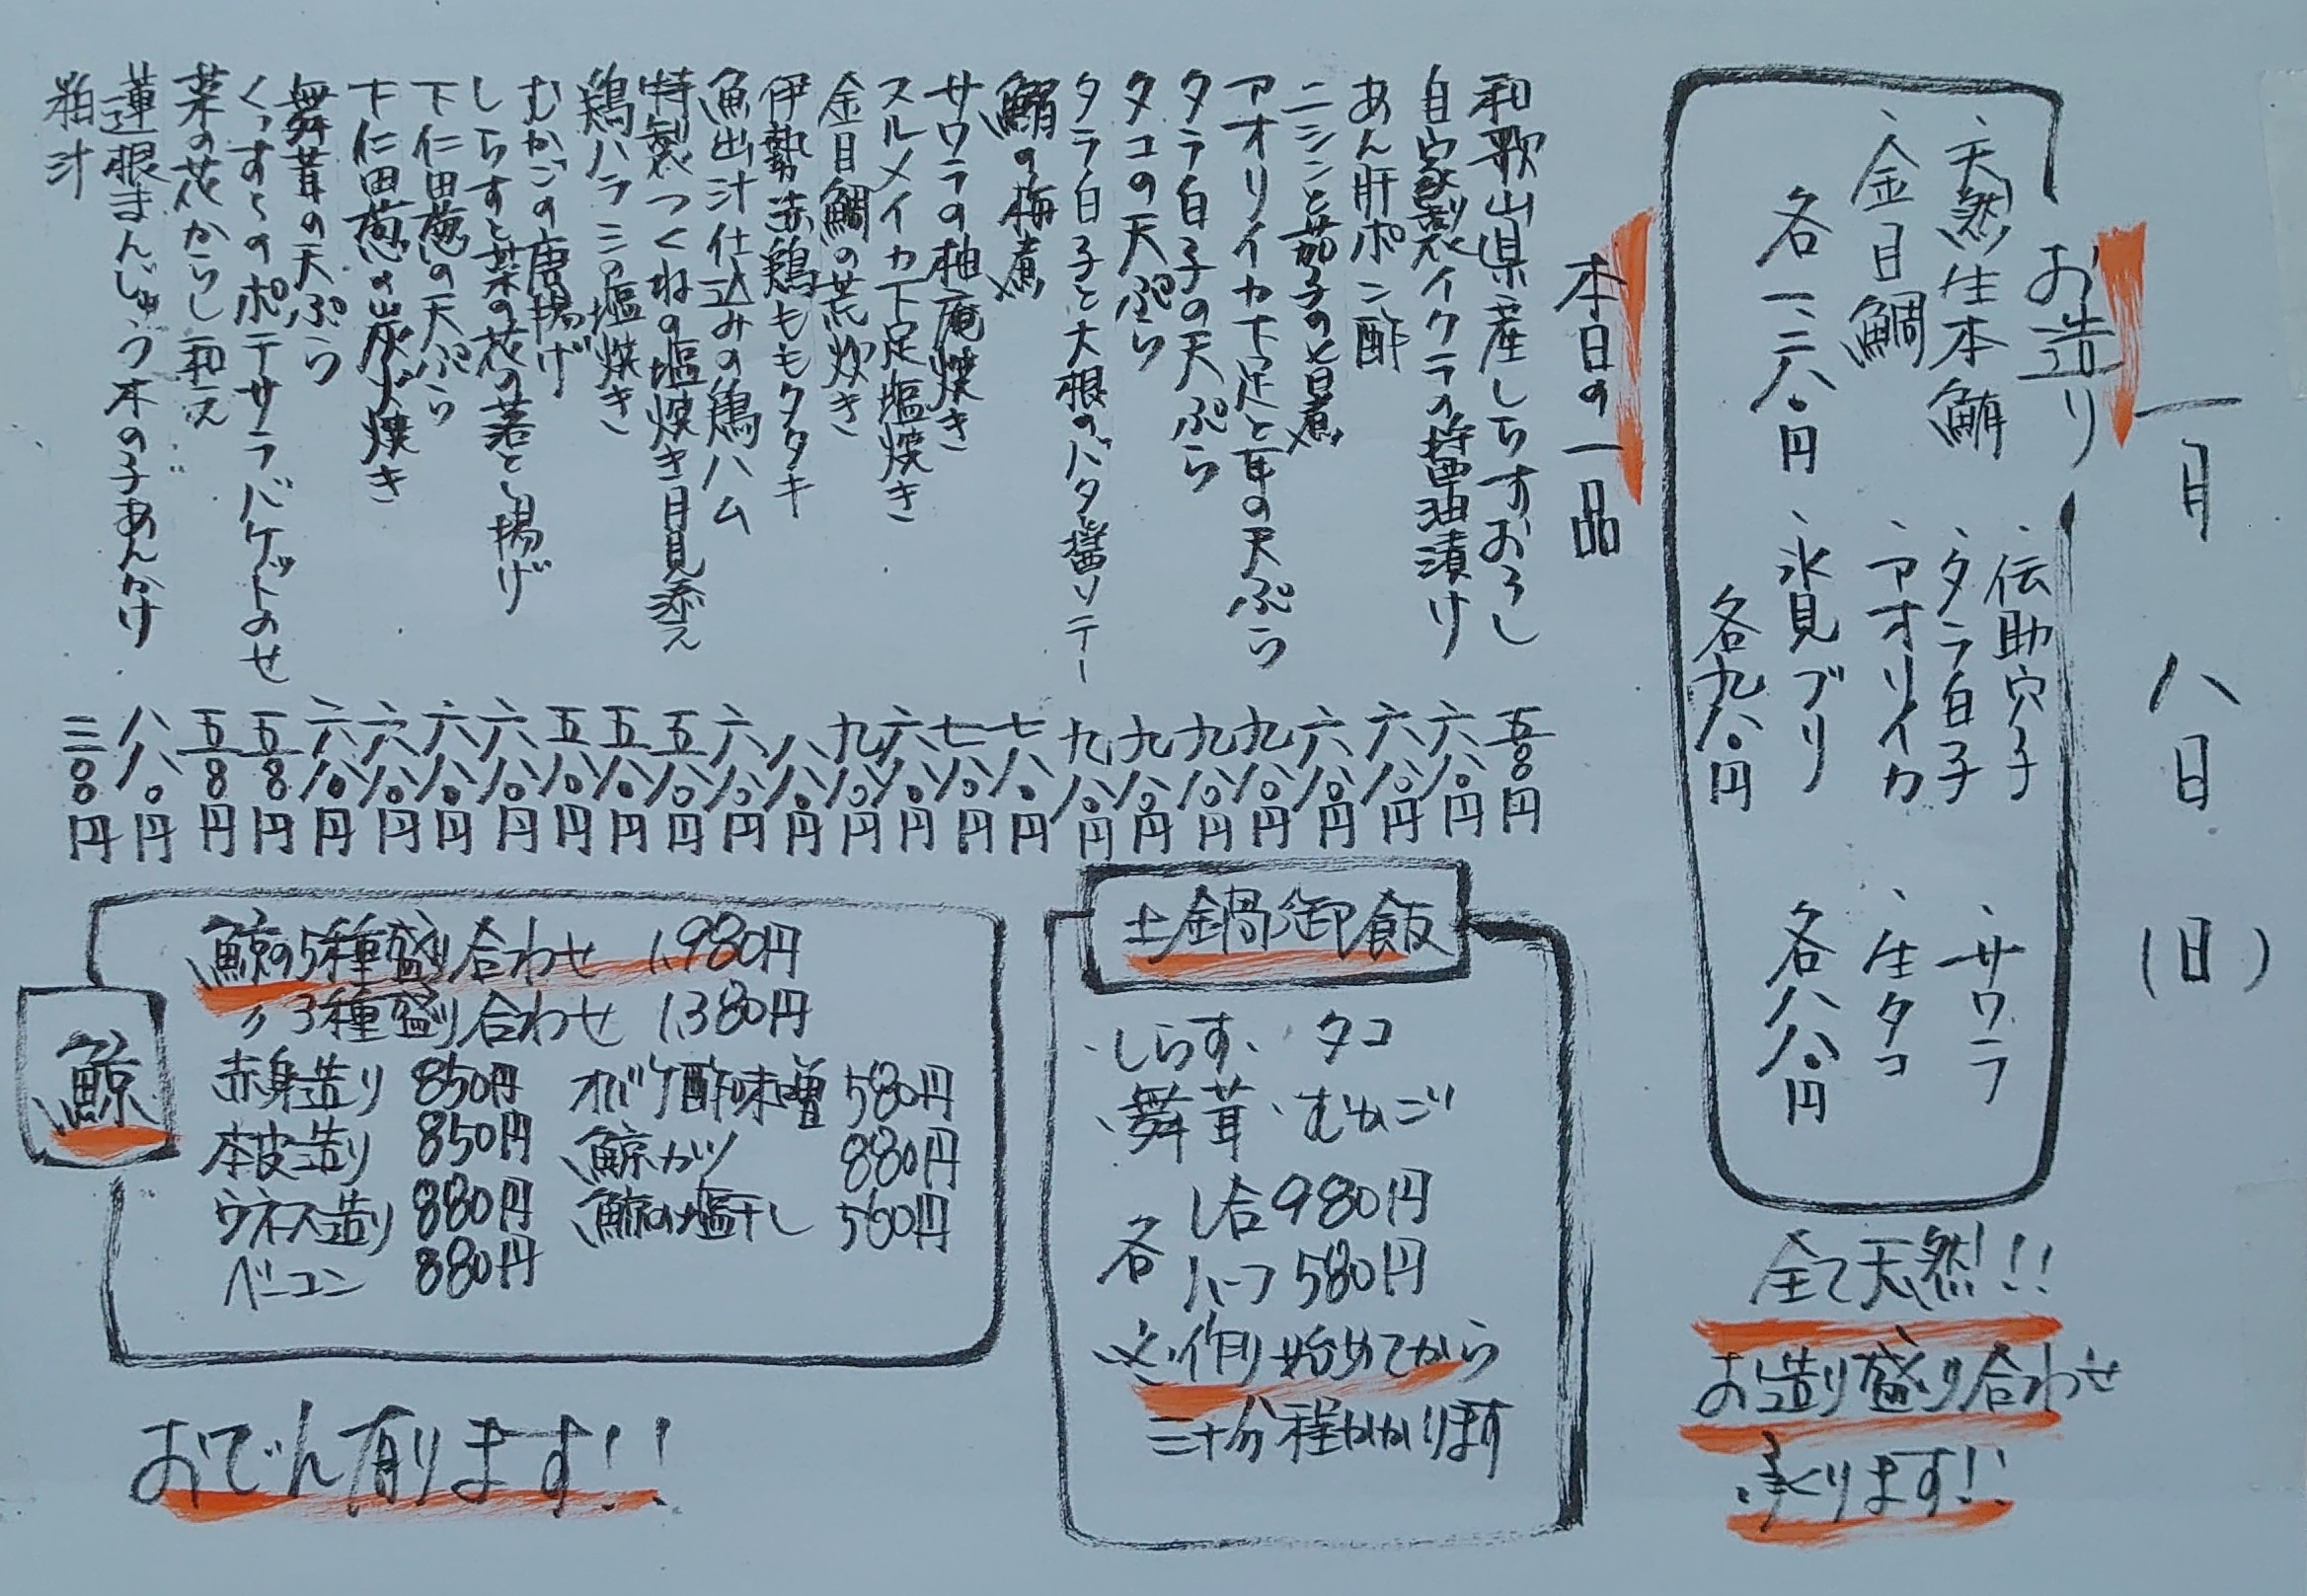 一月八日(日)
お造り
、天然生本鮪
、金目鯛
各一、二八〇円
、伝助穴子
、タラ白子
、アオリイカ
、氷見ブリ
各九八〇円
、サワラ
、生タコ
各八八〇円
全て天然!!
お造り盛り合わせ
承ります!!
本日の一品
和歌山県産しらすおろし 五八〇円
自家製イクラの醤油漬け 六八〇円
あん肝ポン酢 六八〇円
ニシンと茄子のと日煮 六八〇円
アオリイカ下足と耳の天ぷら 九八〇円
タラ白子の天ぷら 九八〇円
タコの天ぷら 九八〇円
タラ白子と大根のバタ醤ソテー 九八〇円
鮪の梅煮 七八〇円
サワラの柚庵焼き 七八〇円
スルメイカ下足塩焼き 六八〇円
金目鯛の荒炊き 九八〇円
伊勢赤鶏ももタタキ 八八〇円
魚出汁仕込みの鶏ハム 六八〇円
特製つくねの塩焼き月見添え 五八〇円
鶏ハラミの塩焼き 五八〇円
むかごの唐揚げ 五八〇円
しらすと菜の花の落とし揚げ 六八〇円
下仁田葱の天ぷら 六八〇円
下仁田葱の炭火焼き 六八〇円
舞茸の天ぷら 六八〇円
くんすとのポテサラバケットのせ 五八〇円
菜の花からし和え 五八〇円
蓮根まんじゅう木の子あんかけ 八八〇円
粕汁 三八〇円
土鍋御飯
・しらす、タコ
、舞茸、むかご
各
1合980円
ハーフ580円
※作り始めてから
三十分程かかります
鯨
鯨の5種盛り合わせ 1,980円
〃3種盛り合わせ 1,380円
赤身造り 850円 オバケ酢味噌 580円
本皮造り 850円 鯨カツ 880円
ウネス造り 880円 鯨の塩干し 560円
ベーコン 880円
おでん有ります!!